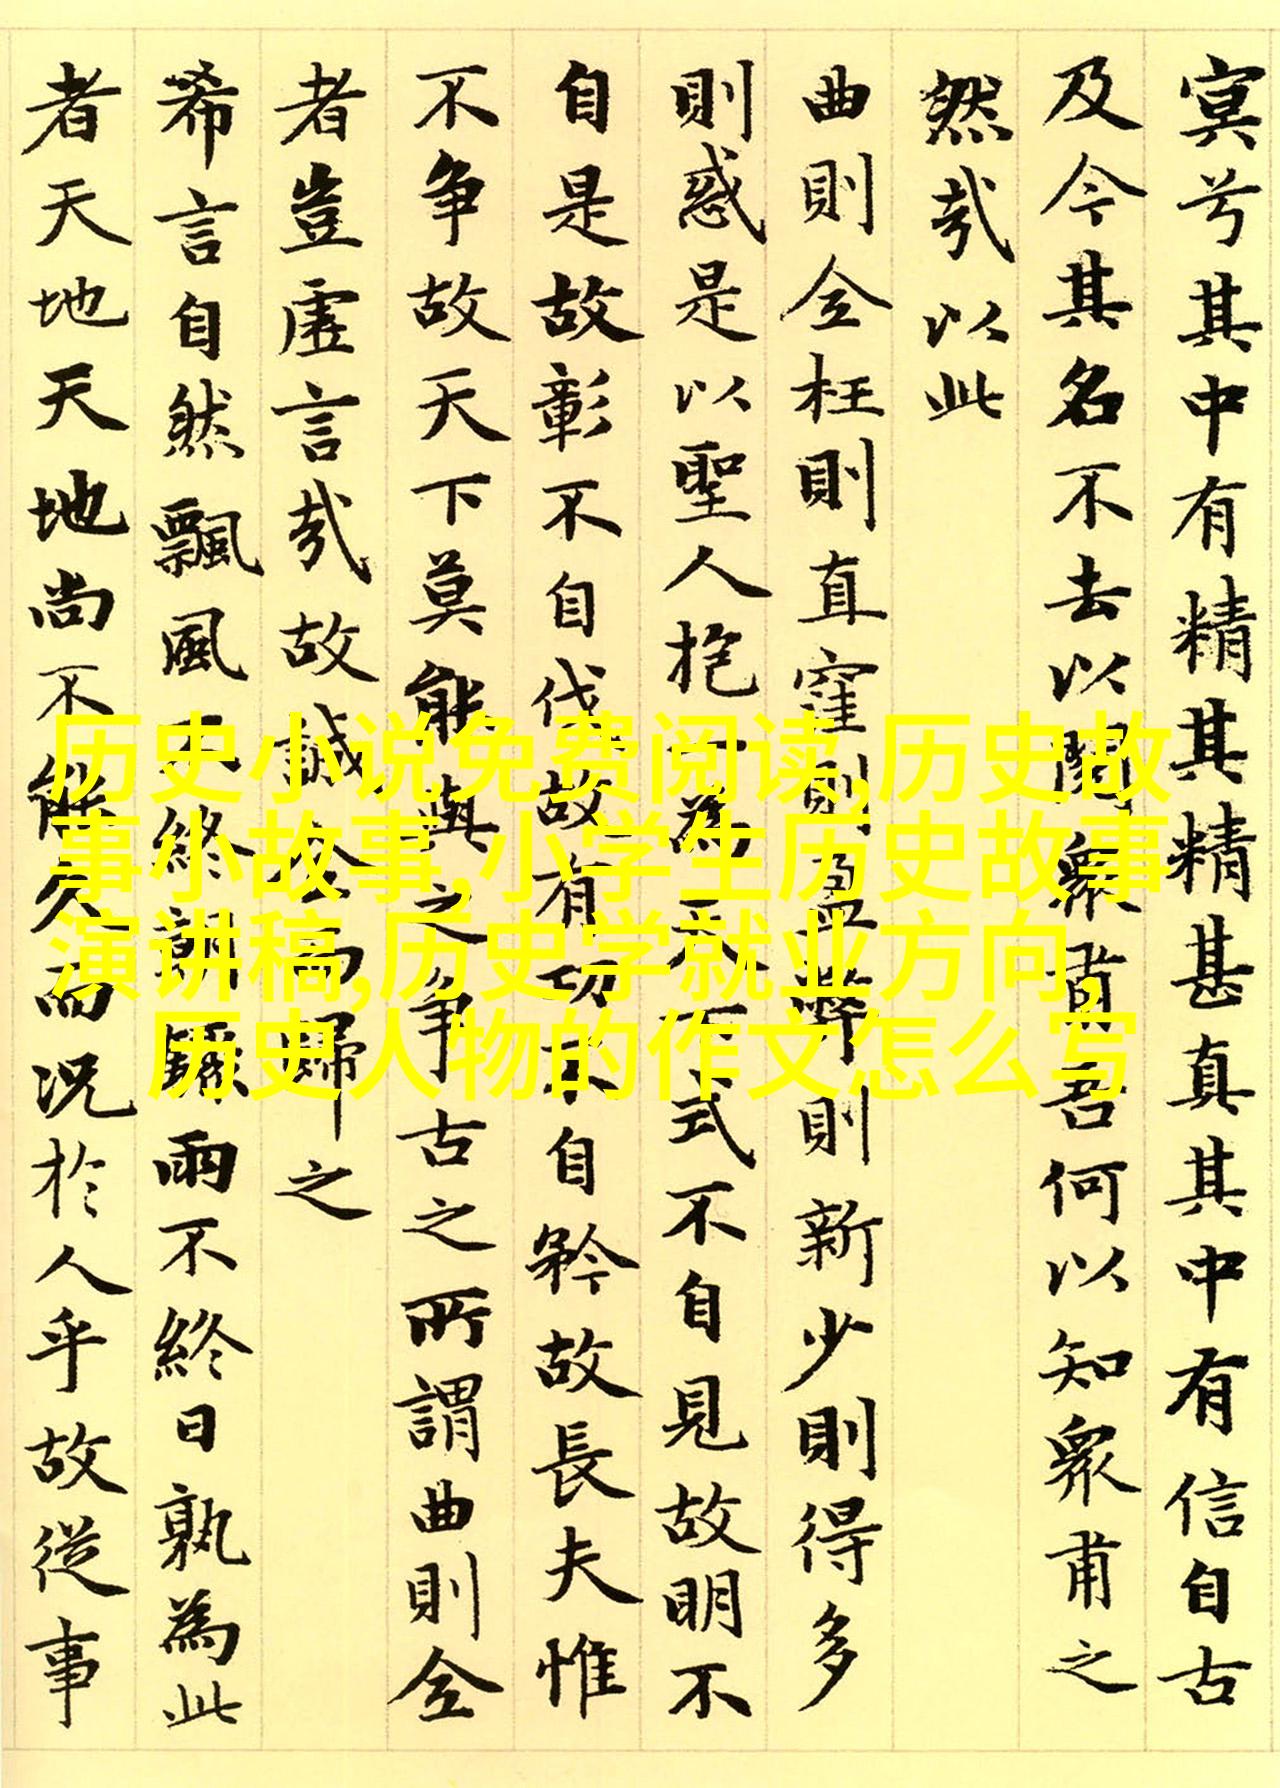 冥兮其中有精其精甚真其中有信自古
及今其名不去以閱衆甫吾何以知衆甫之
然哉以此
曲則全枉則直窪則盈弊則新少則得多
則惑是以聖人抱一為天下式不自見故明不
自是故彰不自伐故有功不自矜故長夫惟
不争故天下莫能與之争古之所謂曲則全
者豈虛言哉故誠全而歸之
希言自然飄風不終朝驟雨不終日孰為此
者天地天地尚不能久而况於人乎故從事
历史小说免费阅读,历史故
事小故事,小学生历史故事
演讲稿,历史学就业方向,
历史人物的作文怎么写